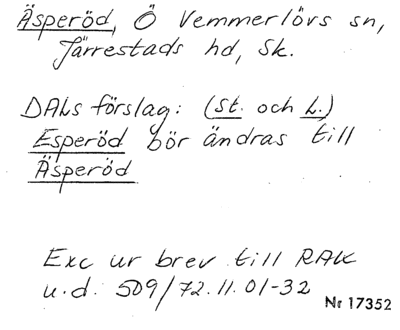 Äsperöd, Ö Vemmerlövs sn,
Järrestads hd, Sk.
DALs förslag: (St. och L.)
Esperöd bör ändras till
Äsperöd
Exc ur brev till RAK
u.d. 509/72.11.01-32
Nr 17352